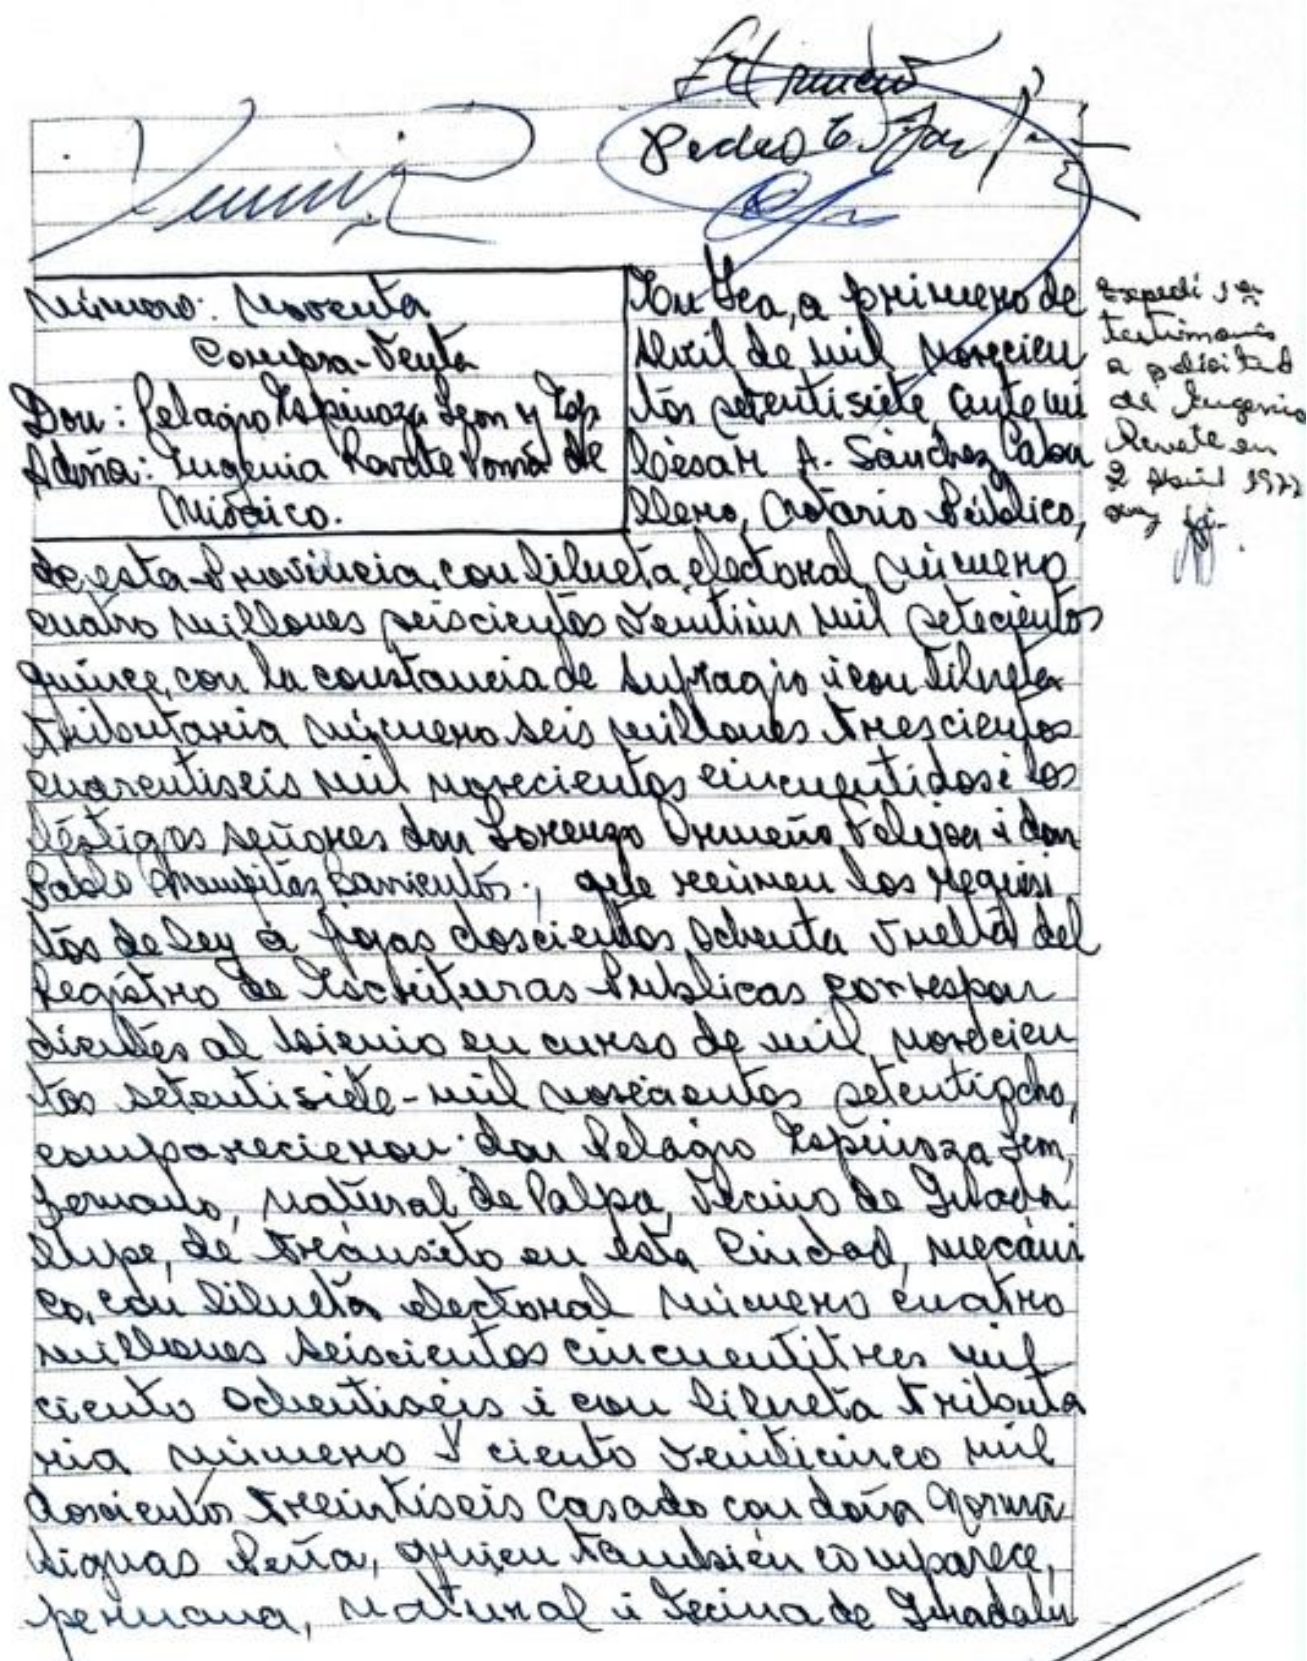 Pedro E.
Número: Noventa
Compra-Venta
Don: Pelagio Espinoza Leon y Esp
A doña: Eugenia Ravate Poma de
Misaico.
En Ica, a primero de
Abril de mil novecien
tos setentisiete ante mi
César A. Sánchez Caba
llero, Notario Público,
Expedí 1er
testimonio
a solicitud
de Eugenia
Ravate en
2 Abril 1977
de esta Provincia, con libreta electoral número
cuatro millones seiscientos veintiun mil setecientos
quince, con la constancia de sufragio i con libreta
tributaria número seis millones trescientos
cuarentiseis mil novecientos cincuentidos i los
téstigos señores don Lorenzo Ormeño i don
Pablo Barrientos, que reúnen los requisi
tos de ley a fojas doscientos ochenta vuelta del
Registro de Escrituras Publicas correspon
dientes al bienio en curso de mil novecien
tos setentisiete-mil novecientos setentiocho,
comparecieron: don Pelagio Espinoza Leon,
peruano, natural de Palpa, vecino de Guada
lupe, de tránsito en esta Ciudad, mecáni
co, con libreta electoral número cuatro
millones seiscientos cincuentitres mil
ciento ochentiseis i con libreta tributa
ria número ciento veinticinco mil
doscientos treintiseis casado con doña Norma
Siguas Peña, quien también comparece,
peruana, natural i vecina de Guadalu